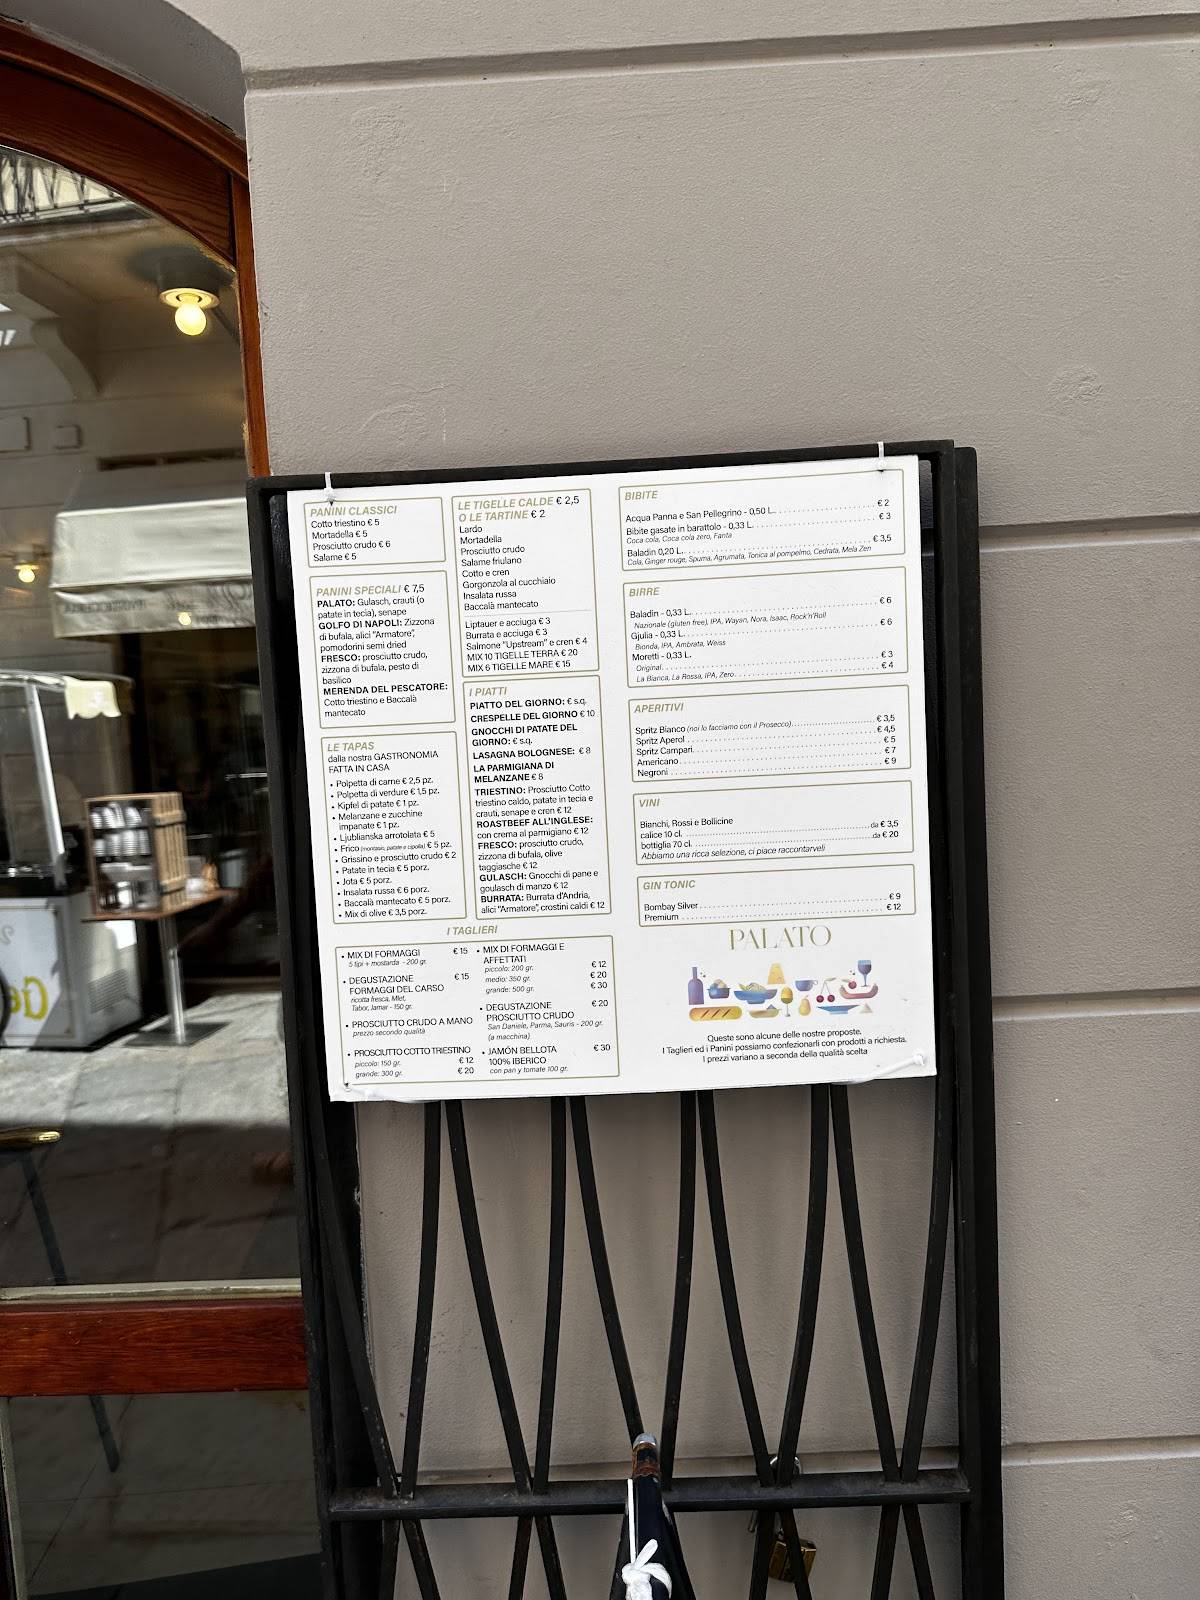 PANINI CLASSICI
Cotto triestino € 5
Mortadella € 5
Prosciutto crudo € 6
Salame € 5
PANINI SPECIALI € 7,5
PALATO: Gulasch, crauti (o
patate in tecia), senape
GOLFO DI NAPOLI: Zizzona
di bufala, alici "Armatore",
pomodorini semi dried
FRESCO: prosciutto crudo,
zizzona di bufala, pesto di
basilico
MERENDA DEL PESCATORE:
Cotto triestino e Baccalà
mantecato
LE TAPAS
dalla nostra GASTRONOMIA
FATTA IN CASA
• Polpetta di carne € 2,5 pz.
• Polpetta di verdure € 1,5 pz.
• Kipfel di patate € 1 pz.
• Melanzane e zucchine
impanate € 1 pz.
• Ljublianska arrotolata € 5
• Frico (montasio, patate e cipolla) € 5 pz.
• Grissino e prosciutto crudo € 2
• Patate in tecia € 5 porz.
• Jota € 5 porz.
• Insalata russa € 6 porz.
• Baccalà mantecato € 5 porz.
• Mix di olive € 3,5 porz.
LE TIGELLE CALDE € 2,5
O LE TARTINE € 2
Lardo
Mortadella
Prosciutto crudo
Salame friulano
Cotto e cren
Gorgonzola al cucchiaio
Insalata russa
Baccalà mantecato
Liptauer e acciuga € 3
Burrata e acciuga € 3
Salmone "Upstream" e cren € 4
MIX 10 TIGELLE TERRA € 20
MIX 6 TIGELLE MARE € 15
I PIATTI
PIATTO DEL GIORNO: € s.q.
CRESPELLE DEL GIORNO € 10
GNOCCHI DI PATATE DEL
GIORNO: € s.q.
LASAGNA BOLOGNESE: € 8
LA PARMIGIANA DI
MELANZANE € 8
TRIESTINO: Prosciutto Cotto
triestino caldo, patate in tecia e
crauti, senape e cren € 12
ROASTBEEF ALL'INGLESE:
con crema al parmigiano € 12
FRESCO: prosciutto crudo,
zizzona di bufala, olive
taggiasche € 12
GULASCH: Gnocchi di pane e
goulasch di manzo € 12
BURRATA: Burrata d'Andria,
alici "Armatore", crostini caldi € 12
I TAGLIERI
• MIX DI FORMAGGI € 15
5 tipi + mostarda - 200 gr.
• DEGUSTAZIONE € 15
FORMAGGI DEL CARSO
ricotta fresca, Mlet,
Tabor, Jamar - 150 gr.
• PROSCIUTTO CRUDO A MANO
prezzo secondo qualità
• PROSCIUTTO COTTO TRIESTINO
piccolo: 150 gr. € 12
grande: 300 gr. € 20
• MIX DI FORMAGGI E
AFFETTATI
piccolo: 200 gr. € 12
medio: 350 gr. € 20
grande: 500 gr. € 30
• DEGUSTAZIONE € 20
PROSCIUTTO CRUDO
San Daniele, Parma, Sauris - 200 gr.
(a macchina)
• JAMÓN BELLOTA € 30
100% IBERICO
con pan y tomate 100 gr.
BIBITE
Acqua Panna e San Pellegrino - 0,50 L. € 2
Bibite gasate in barattolo - 0,33 L. € 3
Coca cola, Coca cola zero, Fanta
Baladin 0,20 L. € 3,5
Cola, Ginger rouge, Spuma, Agrumata, Tonica al pompelmo, Cedrata, Mela Zen
BIRRE
Baladin - 0,33 L. € 6
Nazionale (gluten free), IPA, Wayan, Nora, Isaac, Rock'n'Roll
Gjulia - 0,33 L. € 6
Bionda, IPA, Ambrata, Weiss
Moretti - 0,33 L.
Original € 3
La Bianca, La Rossa, IPA, Zero € 4
APERITIVI
Spritz Bianco (noi lo facciamo con il Prosecco) € 3,5
Spritz Aperol € 4,5
Spritz Campari € 5
Americano € 7
Negroni € 9
VINI
Bianchi, Rossi e Bollicine
calice 10 cl. da € 3,5
bottiglia 70 cl. da € 20
Abbiamo una ricca selezione, ci piace raccontarveli
GIN TONIC
Bombay Silver € 9
Premium € 12
PALATO
Queste sono alcune delle nostre proposte.
I Taglieri ed i Panini possiamo confezionarli con prodotti a richiesta.
I prezzi variano a seconda della qualità scelta